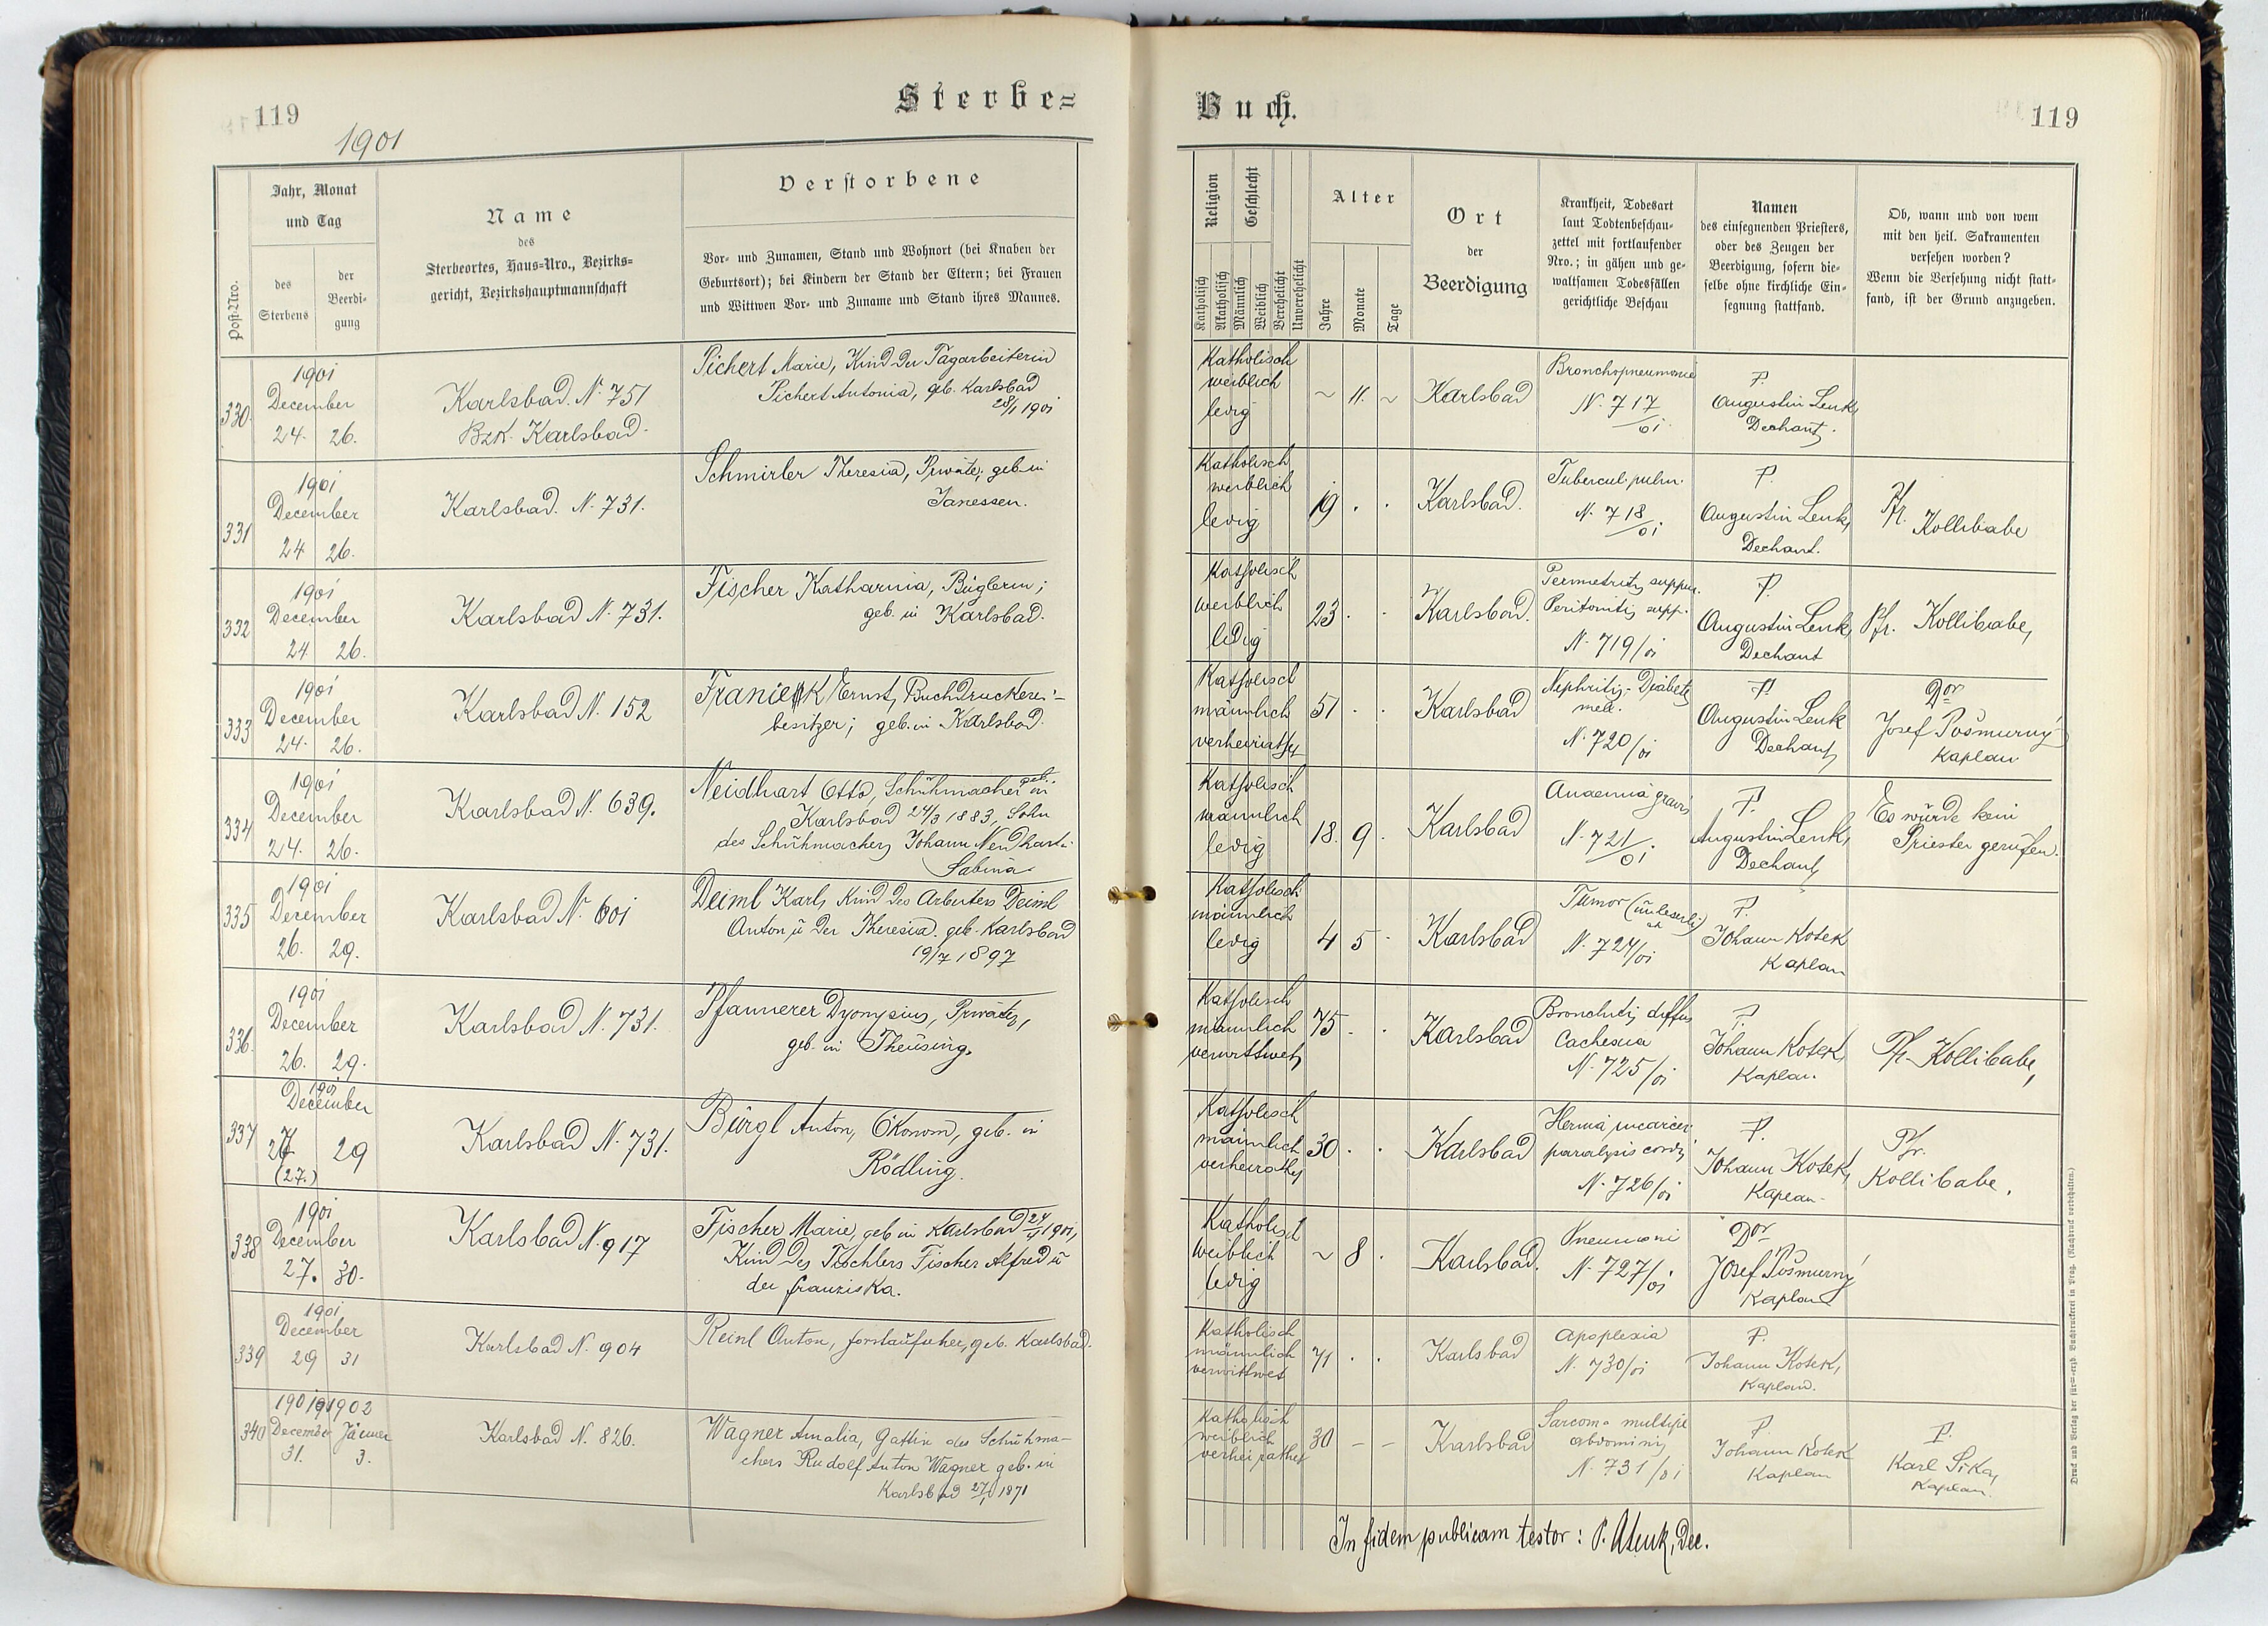 119
1901
Sterbe=
Jahr, Monat
und Tag
Post-Nro.
des
Sterbens
der
Beerdi-
gung
Name
des
Sterbeortes, Haus=Nro., Bezirks=
gericht, Bezirkshauptmannschaft
Verstorbene
Vor- und Zunamen, Stand und Wohnort (bei Knaben der
Geburtsort); bei Kindern der Stand der Eltern; bei Frauen
und Wittwen Vor- und Zuname und Stand ihres Mannes.
330
1901
December
24. 26.
Karlsbad. N. 751
BzK. Karlsbad.
Pichert Marie, Kind der Tagarbeiterin
Pichert Antonia, geb. Karlsbad
28/1 1901
331
1901
December
24 26.
Karlsbad. N. 731.
Schmirler Theresia, Private, geb in
Janessen.
332
1901
December
24 26.
Karlsbad N. 731.
Fischer Katharina, Büglerin;
geb. in Karlsbad.
333
1901
December
24. 26.
Karlsbad N. 152
Franieck Ernst, Buchdruckerei-
besitzer; geb. in Karlsbad.
334
1901
December
24. 26.
Karlsbad N. 639.
Neidhart Otto, Schuhmacher geb. in
Karlsbad 24/3 1883, Sohn
des Schuhmachers Johann Neidhart
Sabina
335
1901
December
26. 29.
Karlsbad N. 601
Deiml Karl, Kind des Arbeiters Deiml
Anton u der Theresia. geb. Karlsbad
19/7 1897
336.
1901
December
26. 29.
Karlsbad N. 731.
Pfannerer Dyonysius, Privatier,
geb. in Theusing.
337
1901
December
27 29
(27.)
Karlsbad N. 731.
Bürgl Anton, Ökonom, geb. in
Rödling.
338
1901
December
27. 30.
Karlsbad N. 917
Fischer Marie, geb in Karlsbad 24/4 1901,
Kind des Tischlers Fischer Alfred u
der Franziska.
339
1901
December
29 31
Karlsbad N. 904
Reinl Anton, Forstaufseher, geb. Karlsbad.
340
1901 1902
December Jänner
31. 3.
Karlsbad N. 826.
Wagner Amalia, Gattin des Schuhma-
chers Rudolf Anton Wagner geb. in
Karlsbad 27/1 1871
Buch.
119
Religion
Geschlecht
Katholisch
Akatholisch
Männlich
Weiblich
Verehelicht
Unverehelicht
Alter
Jahre
Monate
Tage
Ort
der
Beerdigung
Krankheit, Todesart
laut Todtenbeschau-
zettel mit fortlaufender
Nro.; in gähen und ge-
waltsamen Todesfällen
gerichtliche Beschau
Namen
des einsegnenden Priesters,
oder des Zeugen der
Beerdigung, sofern die-
selbe ohne kirchliche Ein-
segnung stattfand.
Ob, wann und von wem
mit den heil. Sakramenten
versehen worden?
Wenn die Versehung nicht statt-
fand, ist der Grund anzugeben.
Katholisch
weiblich
ledig
~ 11. ~
Karlsbad
Bronchopneumonie
N. 717/01
P.
Augustin Lenk,
Dechant.
Katholisch
weiblich
ledig
19 . .
Karlsbad.
Tubercul. pulm.
N. 718/01
P.
Augustin Lenk,
Dechant.
Pfr.
Kollibabe
Katholisch
weiblich
ledig
23 . .
Karlsbad.
Perimetritis suppur.
Peritonitis supp.
N. 719/01
P.
Augustin Lenk,
Dechant
Pfr. Kollibabe,
Katholisch
männlich
verheirathet
51 . .
Karlsbad
Nephritis- Diabetes
mell.
N. 720/01
P.
Augustin Lenk
Dechant
Dor
Josef Pošmurný
Kaplan
Katholisch
männlich
ledig
18. 9 .
Karlsbad
Anaemia gravis
N. 721/01
P.
Augustin Lenk,
Dechant
Es wurde kein
Priester gerufen.
Katholisch
männlich
ledig
4 5 .
Karlsbad
Tumor (unleserlich)
N. 724/01
P.
Johann Kotek
Kaplan
Katholisch
männlich
verwittwet
75 . .
Karlsbad
Bronchitis diffus
Cachexia
N. 725/01
P.
Johann Kotek,
Kaplan.
Pfr. Kollibabe,
Katholisch
männlich
verheirathet
30 . .
Karlsbad
Hernia incarcer.
paralysis cordis
N. 726/01
P.
Johann Kotek,
Kaplan
Pfr.
Kollibabe.
Katholisch
weiblich
ledig
~ 8 .
Karlsbad.
Pneumoni
N. 727/01
Dor
Josef Pošmurný
Kaplan
Katholisch
männlich
verwittwet
71 . .
Karlsbad
Apoplexia
N. 730/01
P.
Johann Kotek,
Kaplan.
Katholisch
weiblich
verheirathet
30 – –
Karlsbad
Sarcoma multipl
abdominis
N. 731/01
P.
Johann Kotek
Kaplan
P.
Karl Sika,
Kaplan.
In fidem publicam testor: P. ALenk, Dec.
Druck und Verlag der fürst-erzb. Buchdruckerei in Prag. (Nachdruck vorbehalten.)